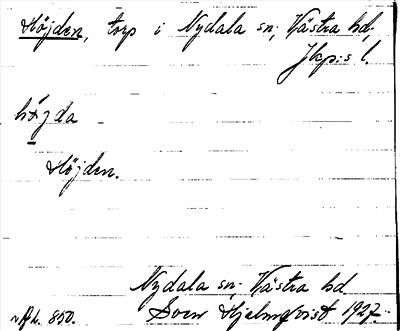 Höjden, torp i Nydala sn, Västra hd,
Jkp:s l.
högda
Höjden.
Nydala sn, Västra hd
Sven Hjelmqvist 1927
850.